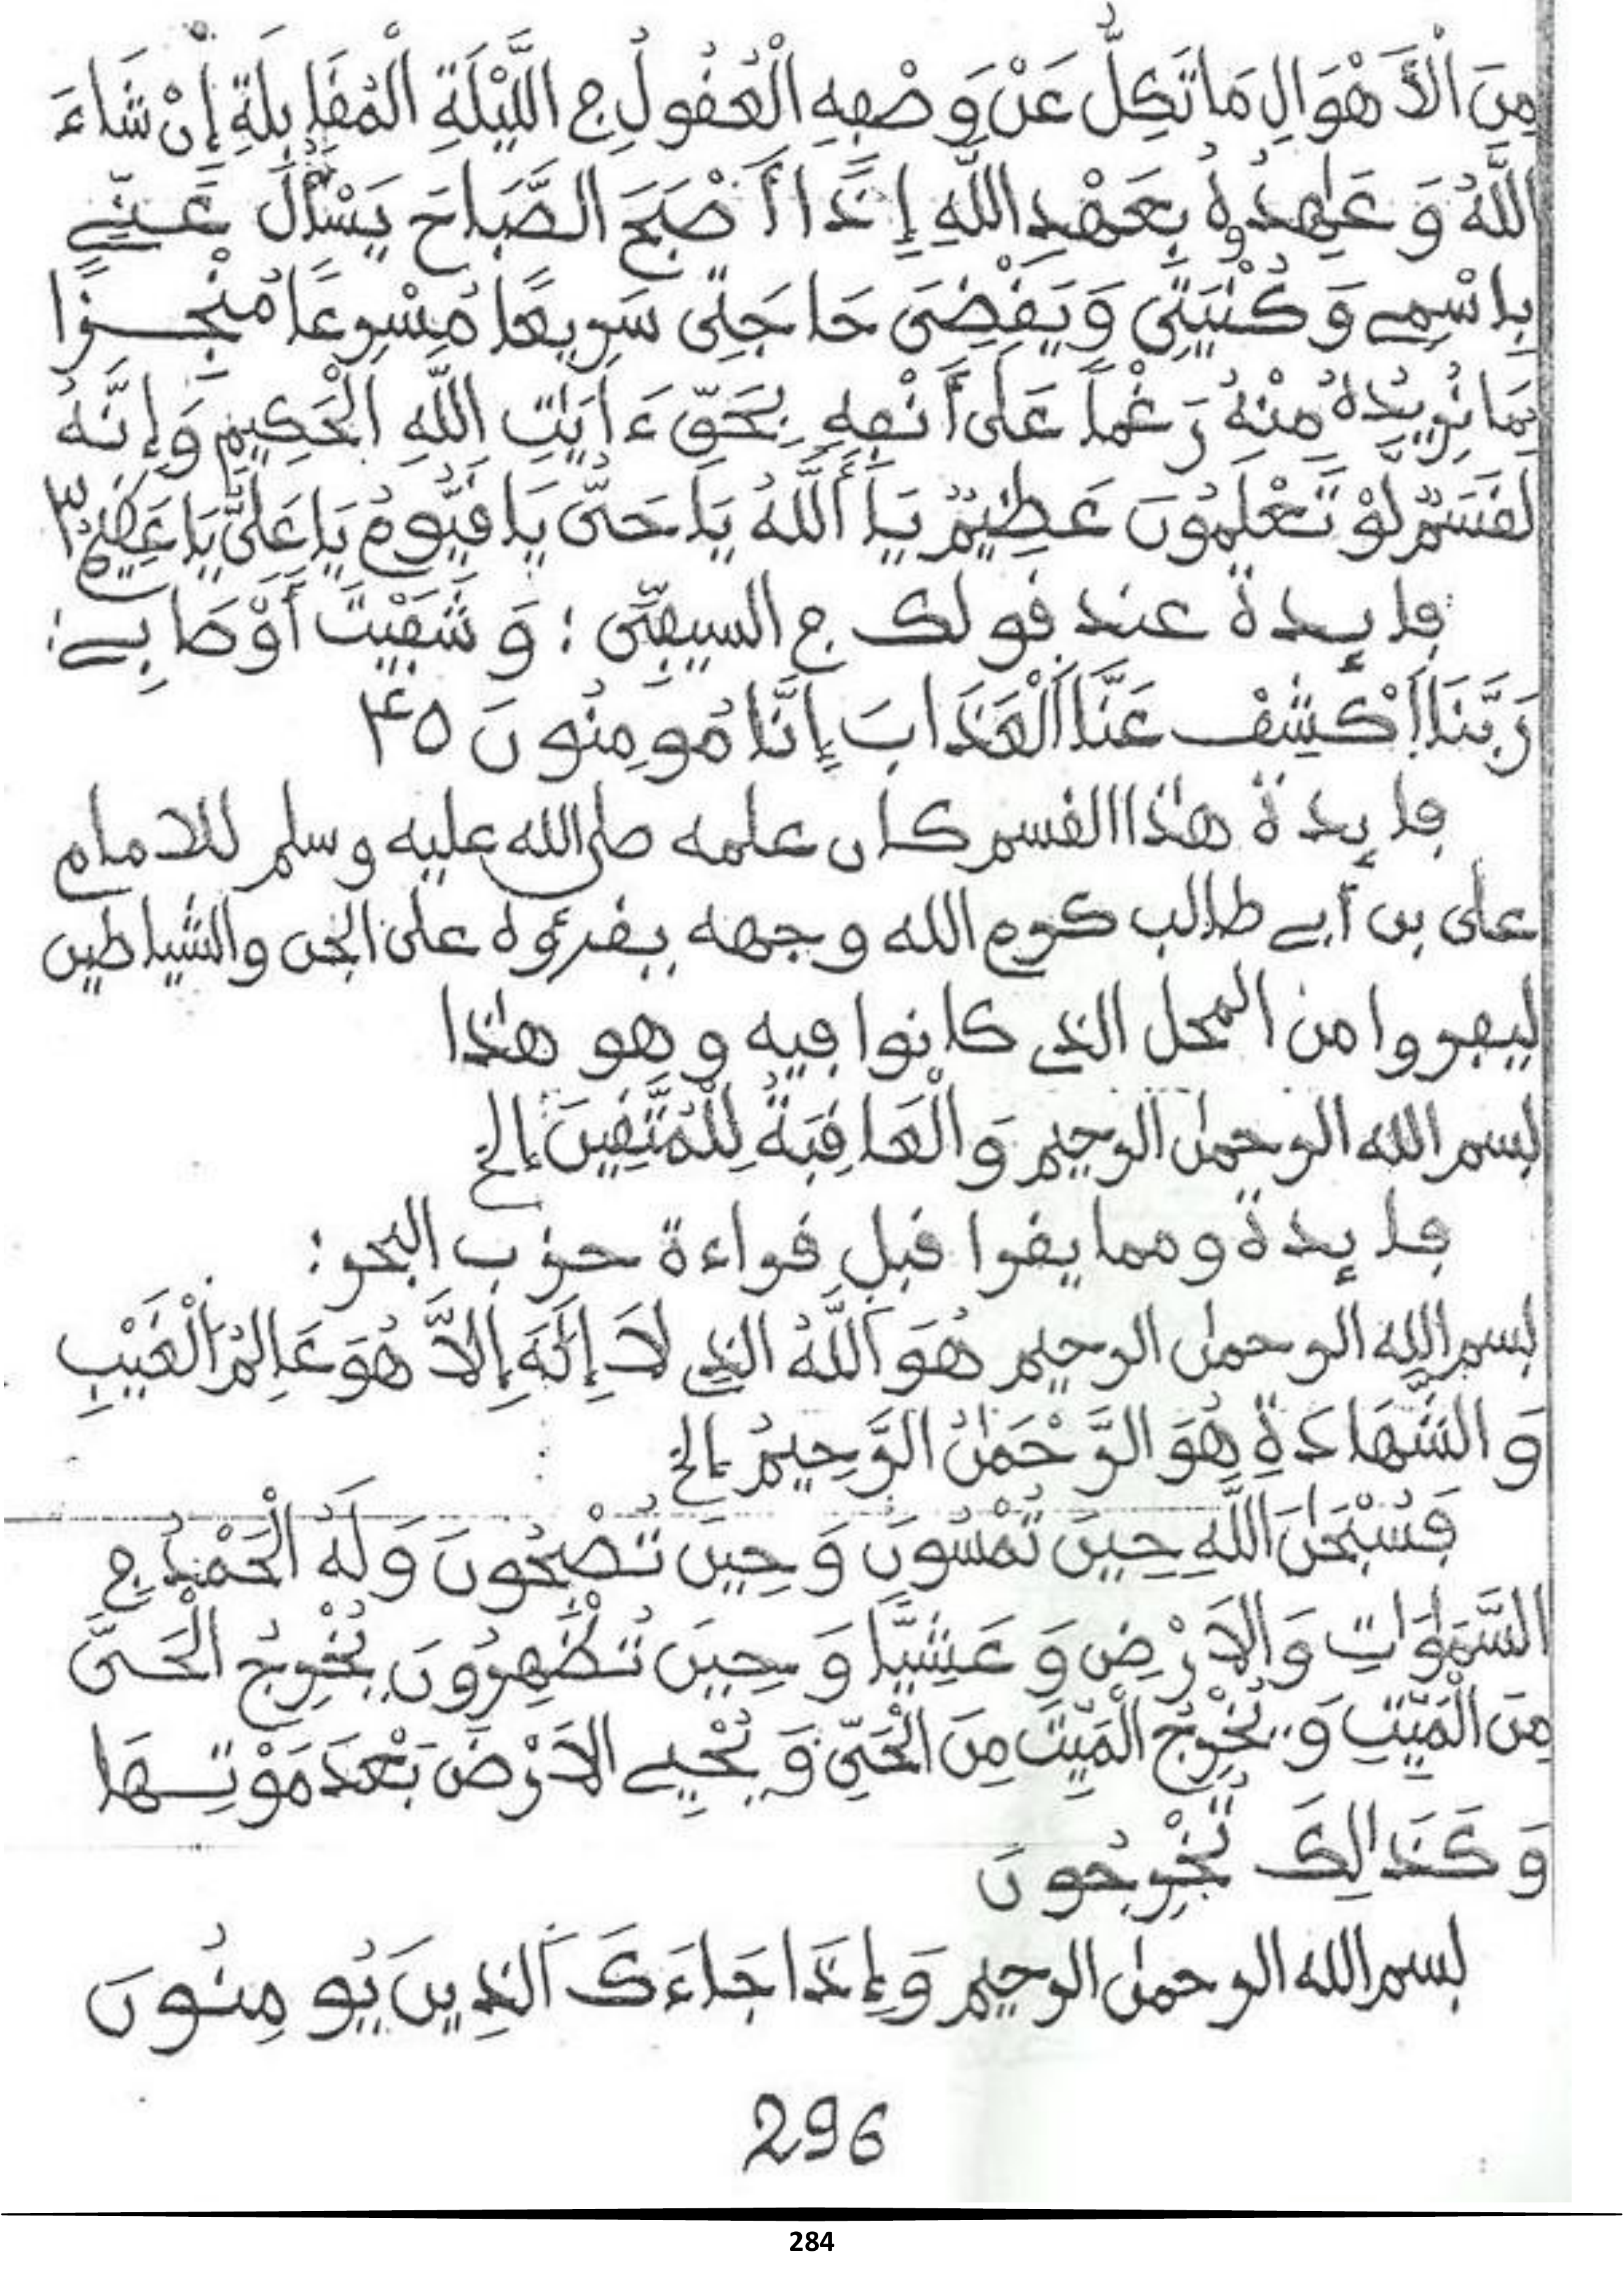 مِنَ الْأَهْوَالِ مَا تَكِلُّ عَنْ وَصْفِهِ الْعُقُولُ فِي اللَّيْلَةِ الْمُقَابِلَةِ إِنْ شَاءَ
اللَّهُ وَعَاهِدُوهُ بِعَهْدِ اللَّهِ إِذَا أَصْبَحَ الصَّبَاحَ يَسْأَلُ عَنِّي
بِاسْمِي وَكُنْيَتِي وَيَقْضِى حَاجَتِى سَرِيعًا مُسْرِعًا مُنْجِزًا
بِمَا نُرِيدُهُ مِنْهُ رَغْماً عَلَى أَنْفِهِ بِحَقِّ ءَايَٰتِ اللَّهِ الْحَكِيمِ وَإِنَّهُ
لَقَسَمٌ لَّوْ تَعْلَمُونَ عَظِيمٌ يَا أَللَّهُ يَا حَىُّ يَا قَيُّومُ يَا عَلِىُّ يَا عَظِيمُ ٣
فايدة عند قولك في السيفى : وَشَفَيْتَ أَوْصَابِي :
رَبَّنَا اَكْشِفْ عَنَّا اَلْعَذَابَ إِنَّا مُومِنُونَ ۴۵
فايدة هذا القسم كان علمه صلى الله عليه وسلم للامام
على بن أبي طالب كرم الله وجهه يقرؤه على الجن والشياطين
ليفروا من المحل الذي كانوا فيه وهو هذا
بسم الله الرحمٰن الرحيم وَالْعَاقِبَةُ لِلْمُتَّقِينَ إلخ
فايدة ومما يقرا قبل قراءة حزب البحر :
بسم الله الرحمٰن الرحيم هُوَ اَللَّهُ الذِي لَا إِلَٰهَ إِلَّا هُوَ عَالِمُ اَلْغَيْبِ
وَالشَّهَادَةِ هُوَ الرَّحْمَٰنُ الرَّحِيمُ إلخ
فَسُبْحَٰنَ اَللَّهِ حِينَ تُمْسُونَ وَحِينَ تُصْبِحُونَ وَلَهُ الْحَمْدُ فِي
السَّمَٰوَٰاتِ وَالَارْضِ وَعَشِيًّا وَحِينَ تُظْهِرُونَ يُخْرِجُ الْحَىَّ
مِنَ الْمَيِّتِ وَيُخْرِجُ الْمَيِّتَ مِنَ الْحَىِّ وَيُحْيِي الَارْضَ بَعْدَ مَوْتِهَا
وَكَذَالِكَ تُخْرَجُونَ
بسم الله الرحمٰن الرحيم وَإِذَا جَاءَكَ اَلذِينَ يُومِنُونَ
296
284